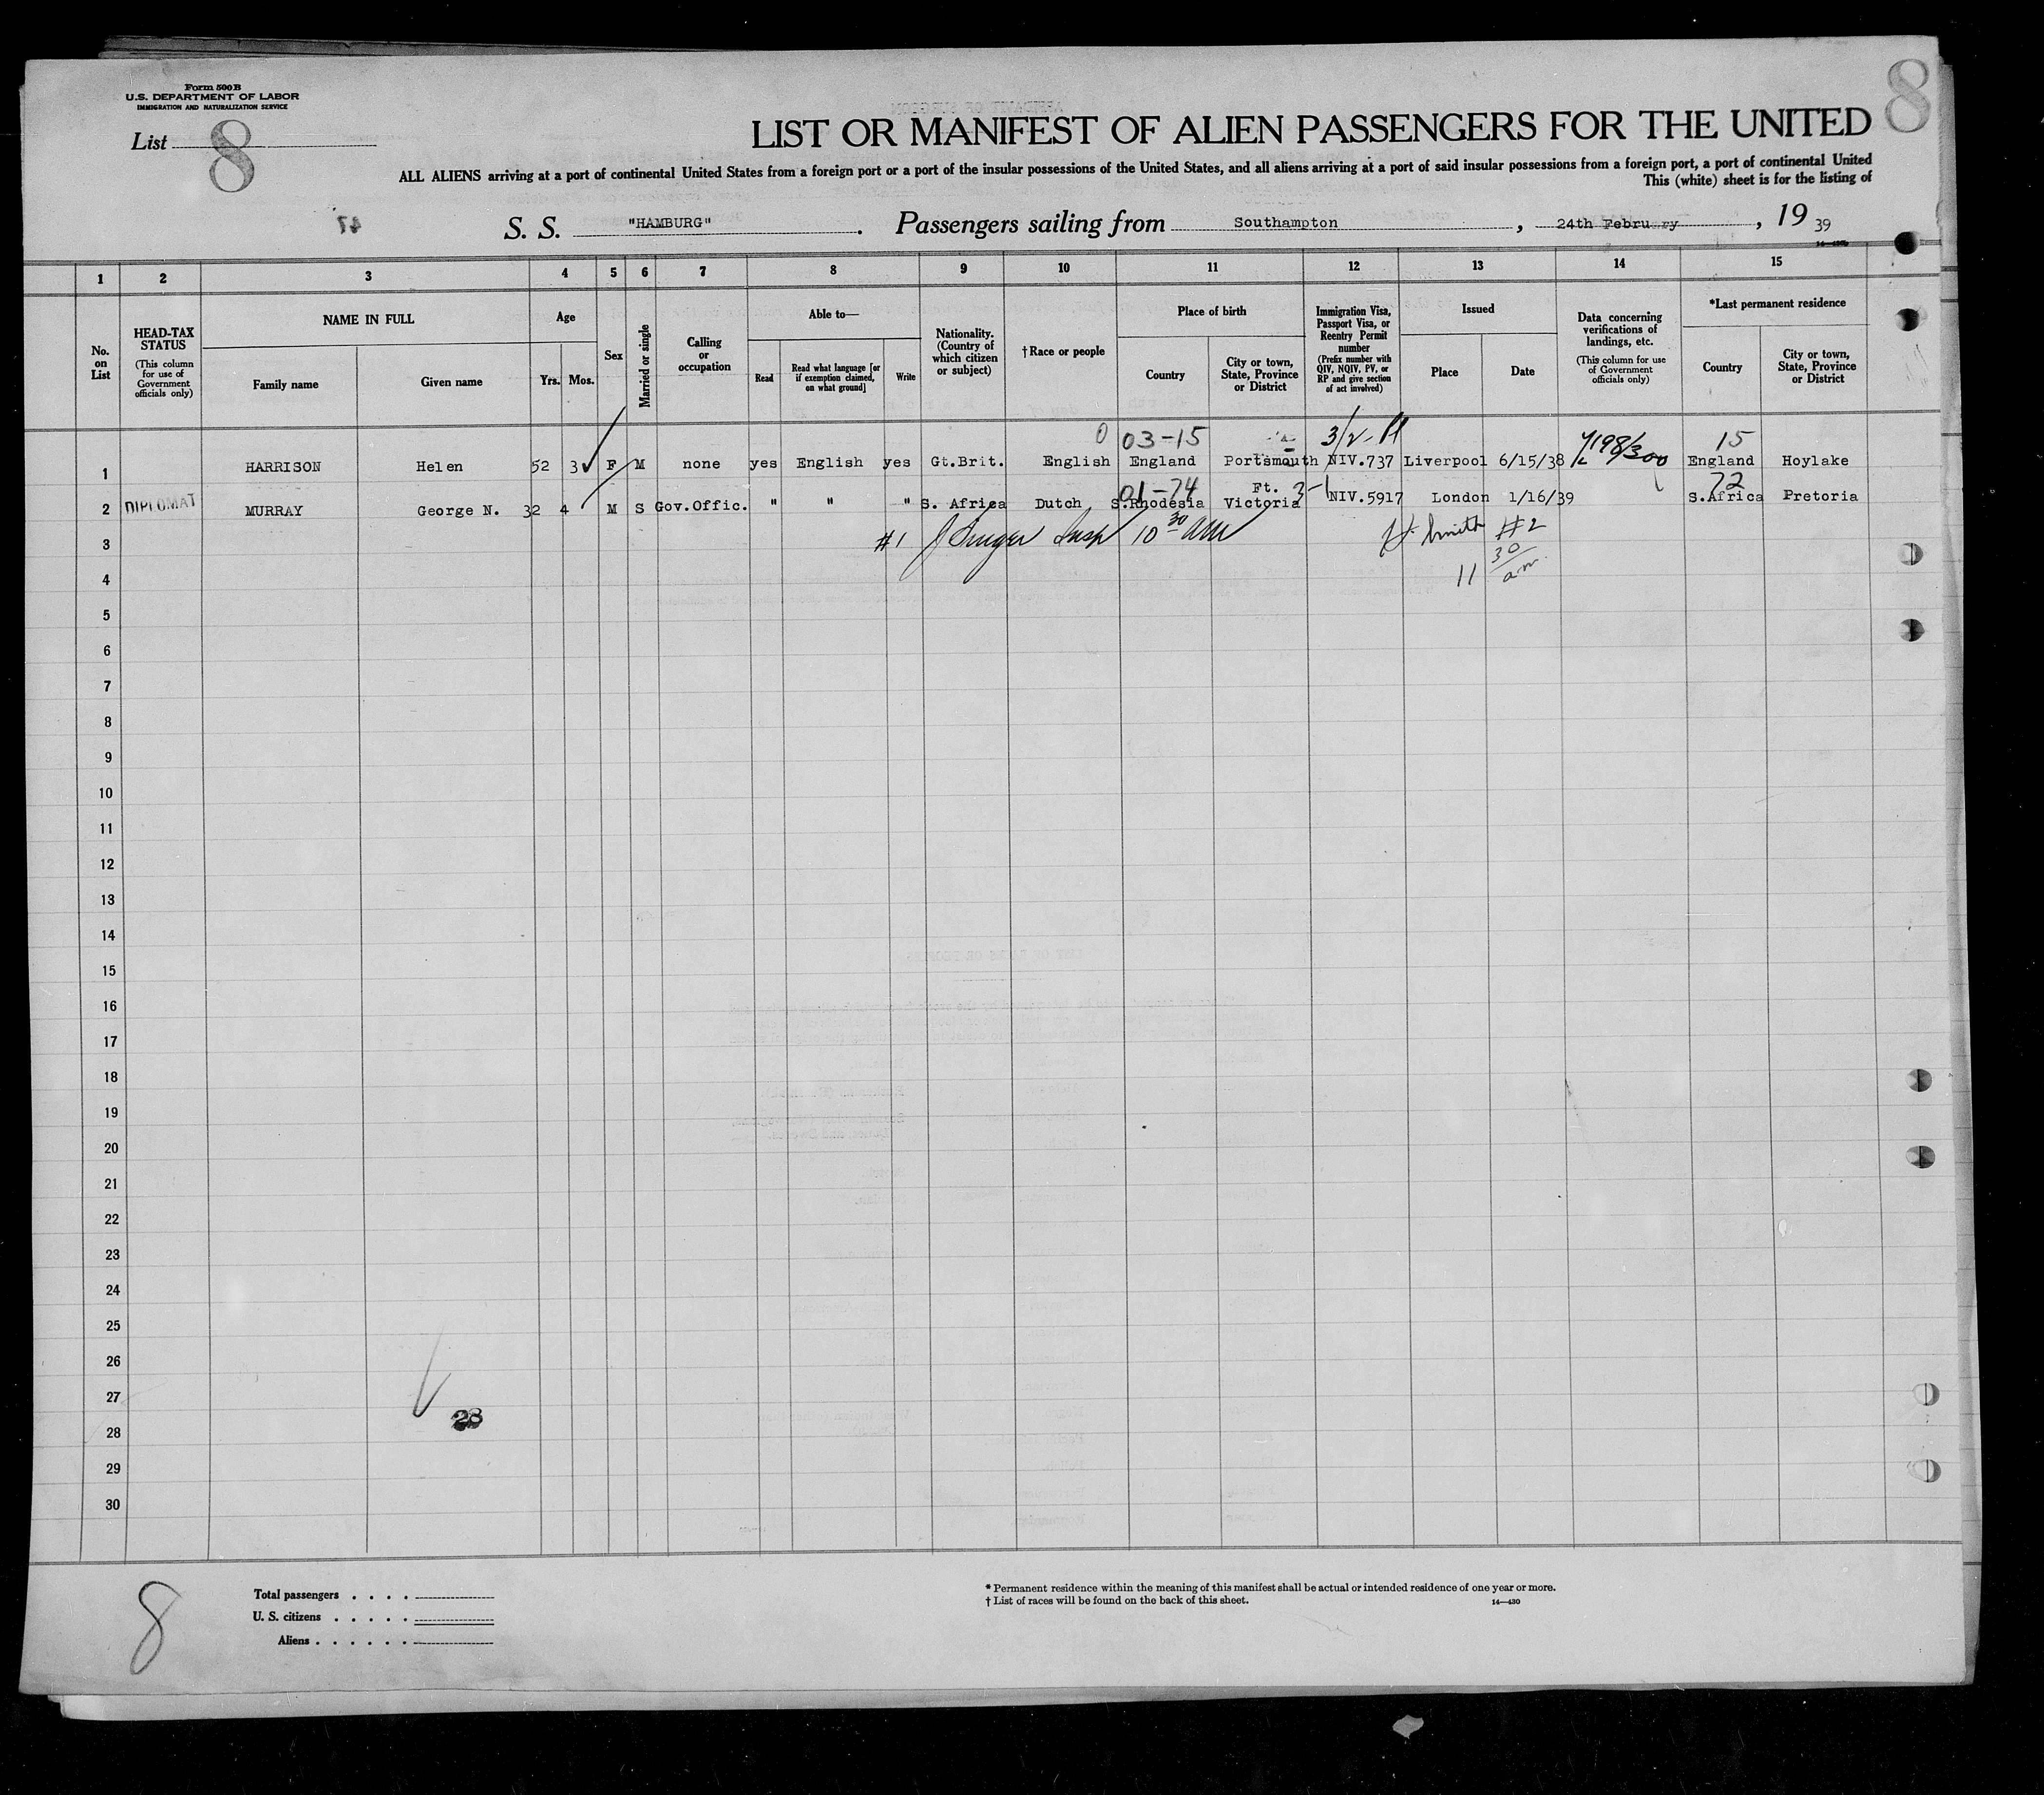 Form 500B
U.S. DEPARTMENT OF LABOR
IMMIGRATION AND NATURALIZATION SERVICE
List 8
8
LIST OR MANIFEST OF ALIEN PASSENGERS FOR THE UNITED
ALL ALIENS arriving at a port of continental United States from a foreign port or a port of the insular possessions of the United States, and all aliens arriving at a port of said insular possessions from a foreign port, a port of continental United
This (white) sheet is for the listing of
S. S. "HAMBURG". Passengers sailing from Southampton, 24th February, 19 39
1 2 3 4 5 6 7 8 9 10 11 12 13 14 15
No. on List
HEAD-TAX STATUS
(This column for use of Government officials only)
NAME IN FULL
Family name
Given name
Age
Yrs. Mos.
Sex
Married or single
Calling or occupation
Able to—
Read
Read what language [or if exemption claimed, on what ground]
Write
Nationality. (Country of which citizen or subject)
†Race or people
Place of birth
Country
City or town, State, Province or District
Immigration Visa, Passport Visa, or Reentry Permit number
(Prefix number with QIV, NQIV, PV, or RP and give section of act involved)
Issued
Place
Date
Data concerning verifications of landings, etc.
(This column for use of Government officials only)
*Last permanent residence
Country
City or town, State, Province or District
0 03-15 15
1 HARRISON Helen 52 3 F M none yes English yes Gt.Brit. English England Portsmouth NIV.737 Liverpool 6/15/38 England Hoylake
01-74 Ft. 3-1 72
2 DIPLOMAT MURRAY George N. 32 4 M S Gov.Offic. " " " S. Africa Dutch S.Rhodesia Victoria NIV.5917 London 1/16/39 S.Africa Pretoria
3 #1 Insp 10 30 AM H. Smith #2
4 11 30 am
5
6
7
8
9
10
11
12
13
14
15
16
17
18
19
20
21
22
23
24
25
26
27
28
28
29
30
8
Total passengers . . . .
U. S. citizens . . . . .
Aliens . . . . . .
* Permanent residence within the meaning of this manifest shall be actual or intended residence of one year or more.
† List of races will be found on the back of this sheet.
14—430